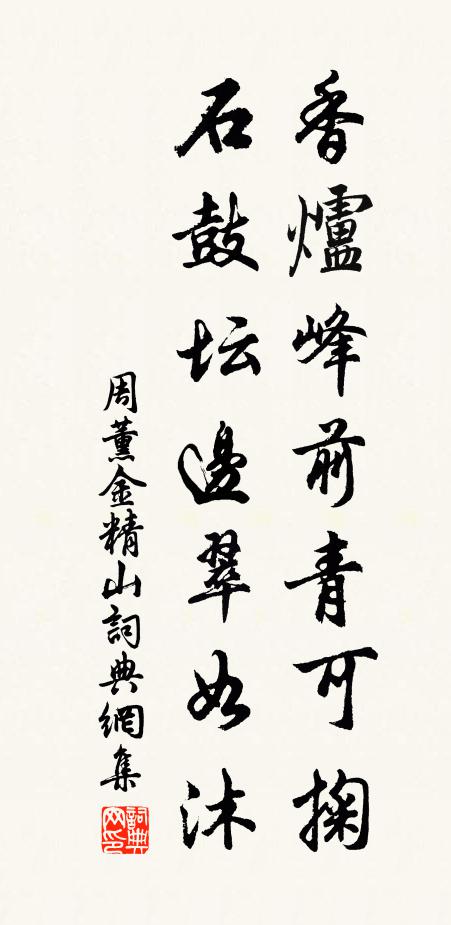 香爐峰前青可掬
石鼓坛邊翠如沐
周薰金精山詞典網集
詞典網印